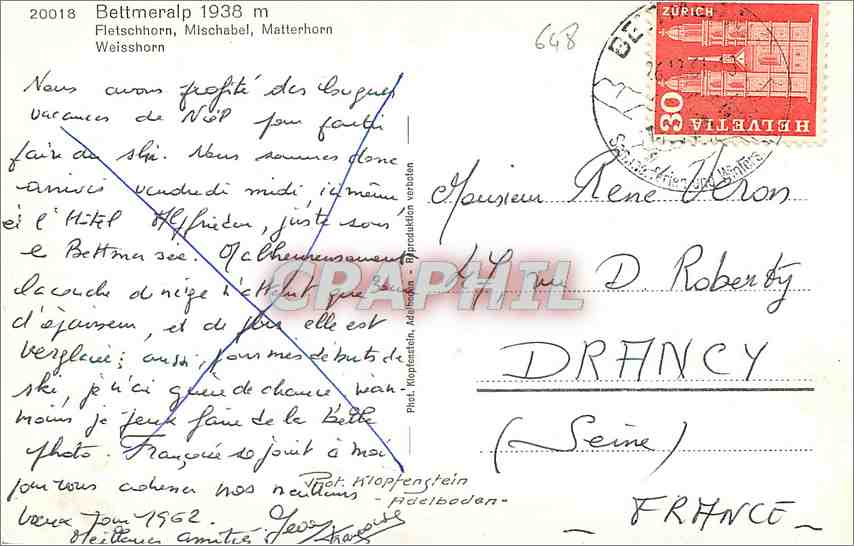 20018 Bettmeralp 1938 m
Fletschhorn, Mischabel, Matterhorn
Weisshorn
648
Nous avons profité des longues
vacances de Noël pour partir
faire du ski. Nous sommes donc
arrivés vendredi midi ici même
à l'Hôtel Alpfrieden, juste sous
le Bettmersee. Malheureusement
la couche de neige n'atteint que
d'épaisseur, et de plus elle est
verglacée; aussi, pour mes débuts de
ski, je n'ai guère de chance, néan-
moins je peux faire de la belle
photo. Françoise se joint à moi
pour vous adresser nos meilleurs
voeux pour 1962.
Meilleures amitiés
Françoise
Phot. Klopfenstein, Adelboden - Reproduktion verboten
Phot. Klopfenstein
- Adelboden -
ZÜRICH
30
HELVETIA
Monsieur René Véron
47, rue D. Roberty
DRANCY
(Seine)
- FRANCE -
CPAPHIL